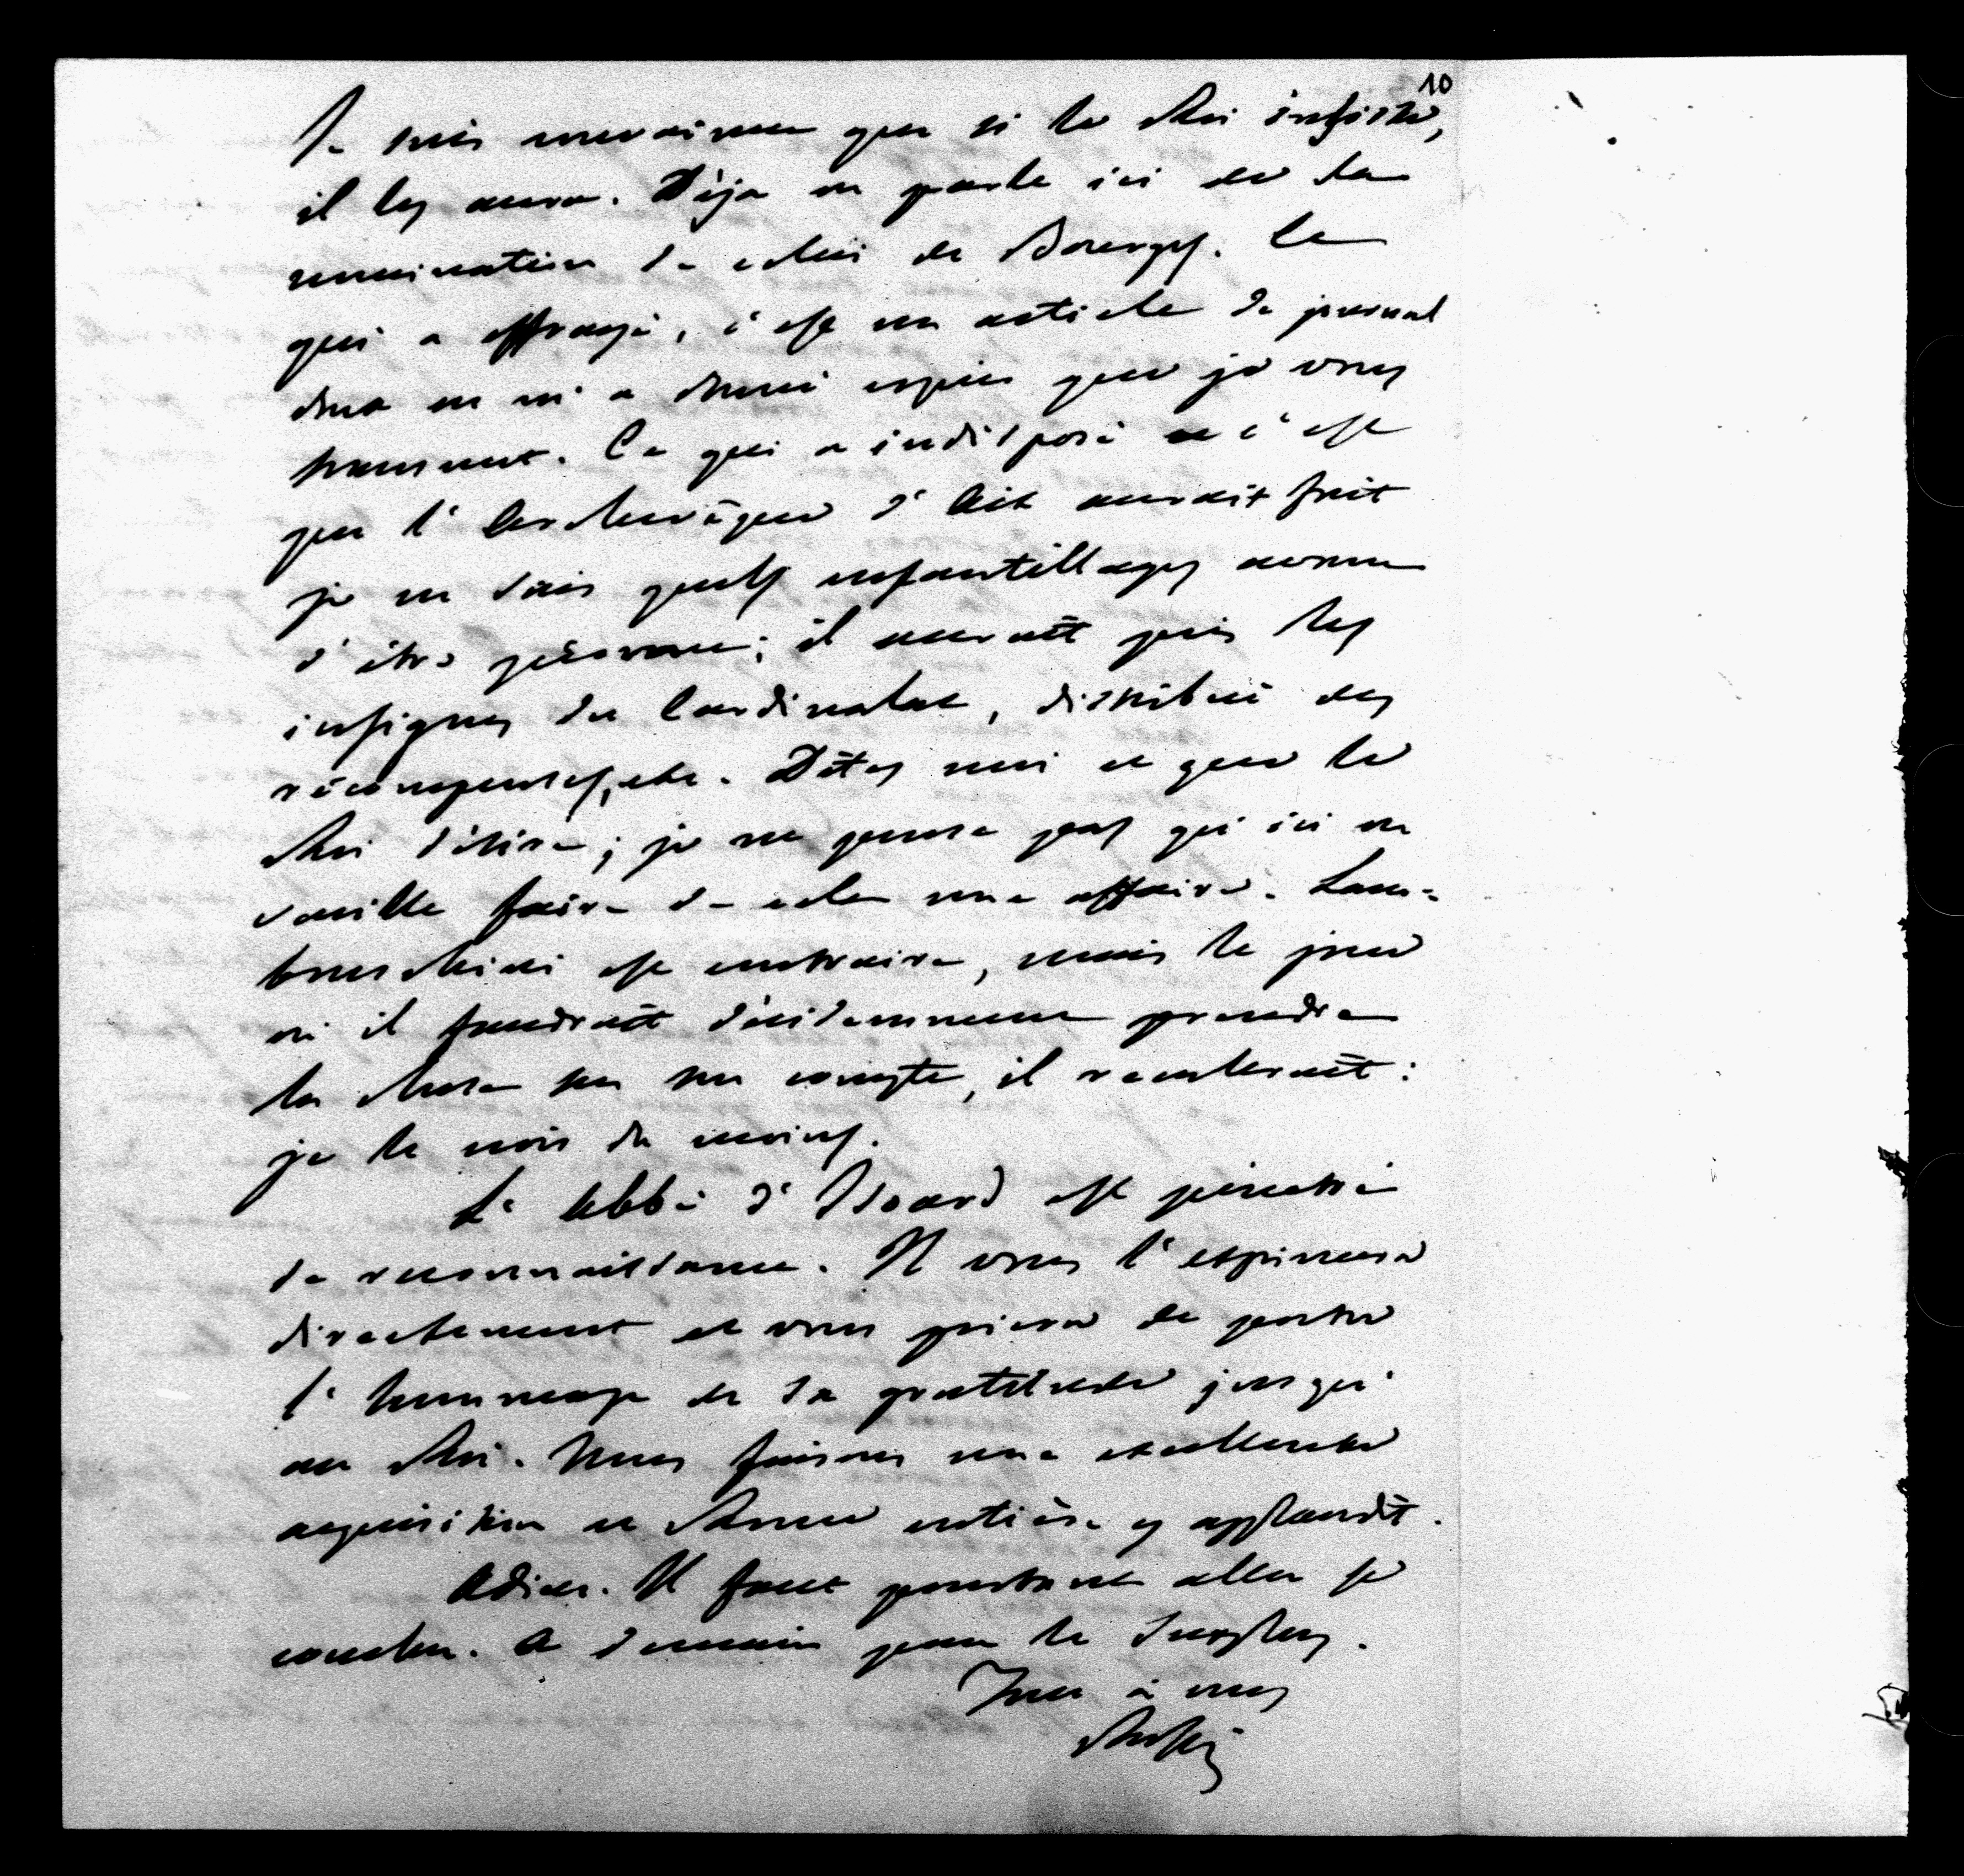 10
Je suis convaincu que si le Roi insiste,
il les aura. Déja on parle ici de la
nomination de celui de Bourges. Ce
qui a effrayé, c'est un article de journal
dont on m'a donné copie que je vous
transmet. Ce qui a indisposé c'est
que l'Archevêque d'Aix aurait fait
je ne sais quels enfantillages comme
d'être ; il aurait pris les
insignes du Cardinalat, distribué des
récompenses, etc. Dites moi ce que le
Roi désire ; je ne pense pas qu'ici on
veuille faire de cela une affaire. Lam-
bruschini est contraire, mais le jour
où il faudrait décidemment prendre
la chose sur son compte, il reculerait :
je le crois du moins.
L'Abbé d'Isoard est pénétré
de reconnaissance. Il vous l'exprimera
directement et vous priera de porter
l'hommage de sa gratitude jusqu'
au Roi. Nous faisons une excellente
acquisition et Rome entière y applaudit.
Adieu. Il faut pourtant aller se
coucher. A demain pour le surplus.
Tout à vous
Rossi